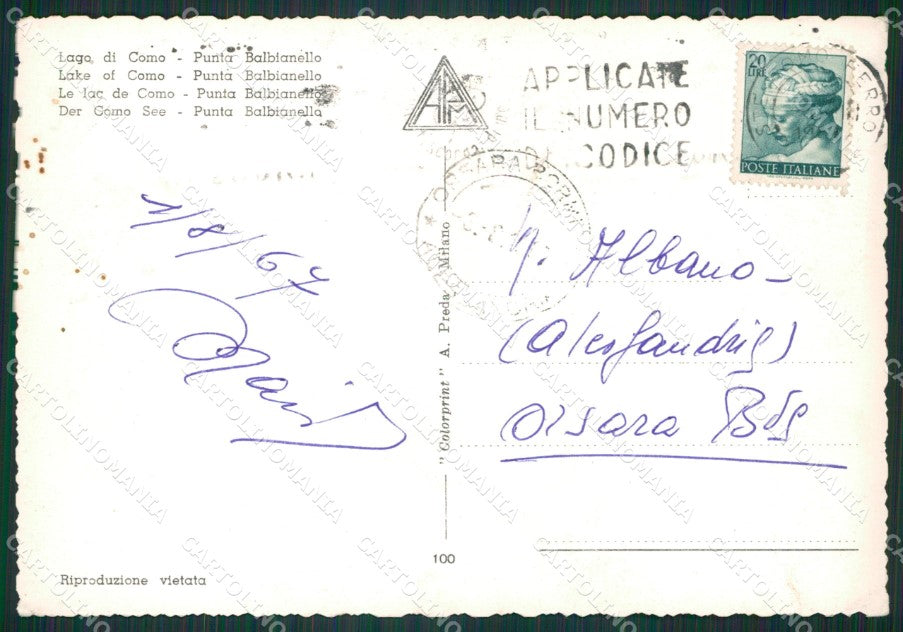 Lago di Como - Punta Balbianello
Lake of Como - Punta Balbianello
Le lac de Como - Punta Balbianello
Der Como See - Punta Balbianello
APPLICATE
IL NUMERO
DI CODICE
20
LIRE
POSTE ITALIANE
1/8/67
Albano
(Alessandria)
Orsara Bda
"Colorprint" A. Preda Milano
100
Riproduzione vietata
CARTOLINOMANIA